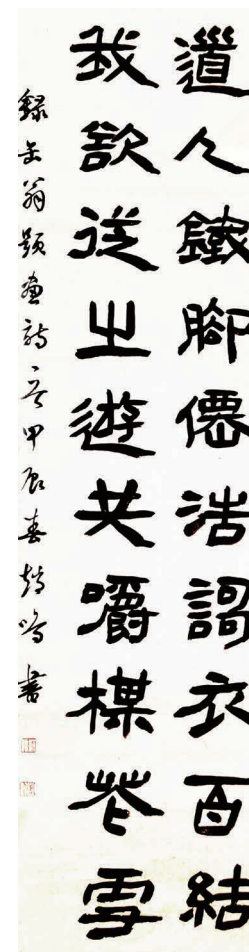 道人鐵腳僊浩謌衣百結
我欲從之遊共嚼楳花雪
錄缶翁題畫詩一首甲辰春趙鳴書